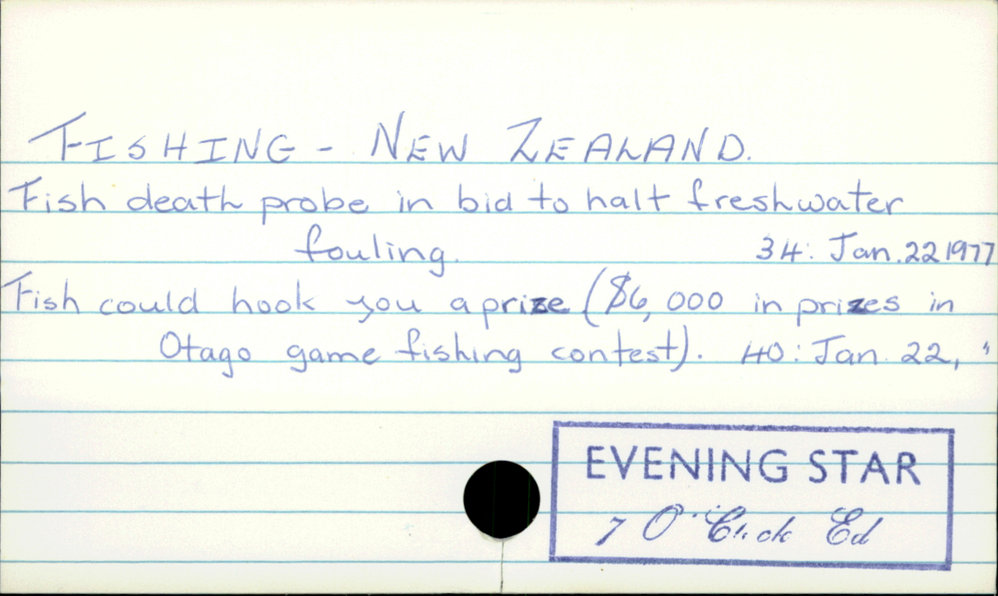 FISHING - NEW ZEALAND.
Fish death probe in bid to halt freshwater
fouling. 34: Jan. 22 1977
Fish could hook you a prize ($6,000 in prizes in
Otago game fishing contest). 40: Jan. 22, "
EVENING STAR
7 O'Clock Ed